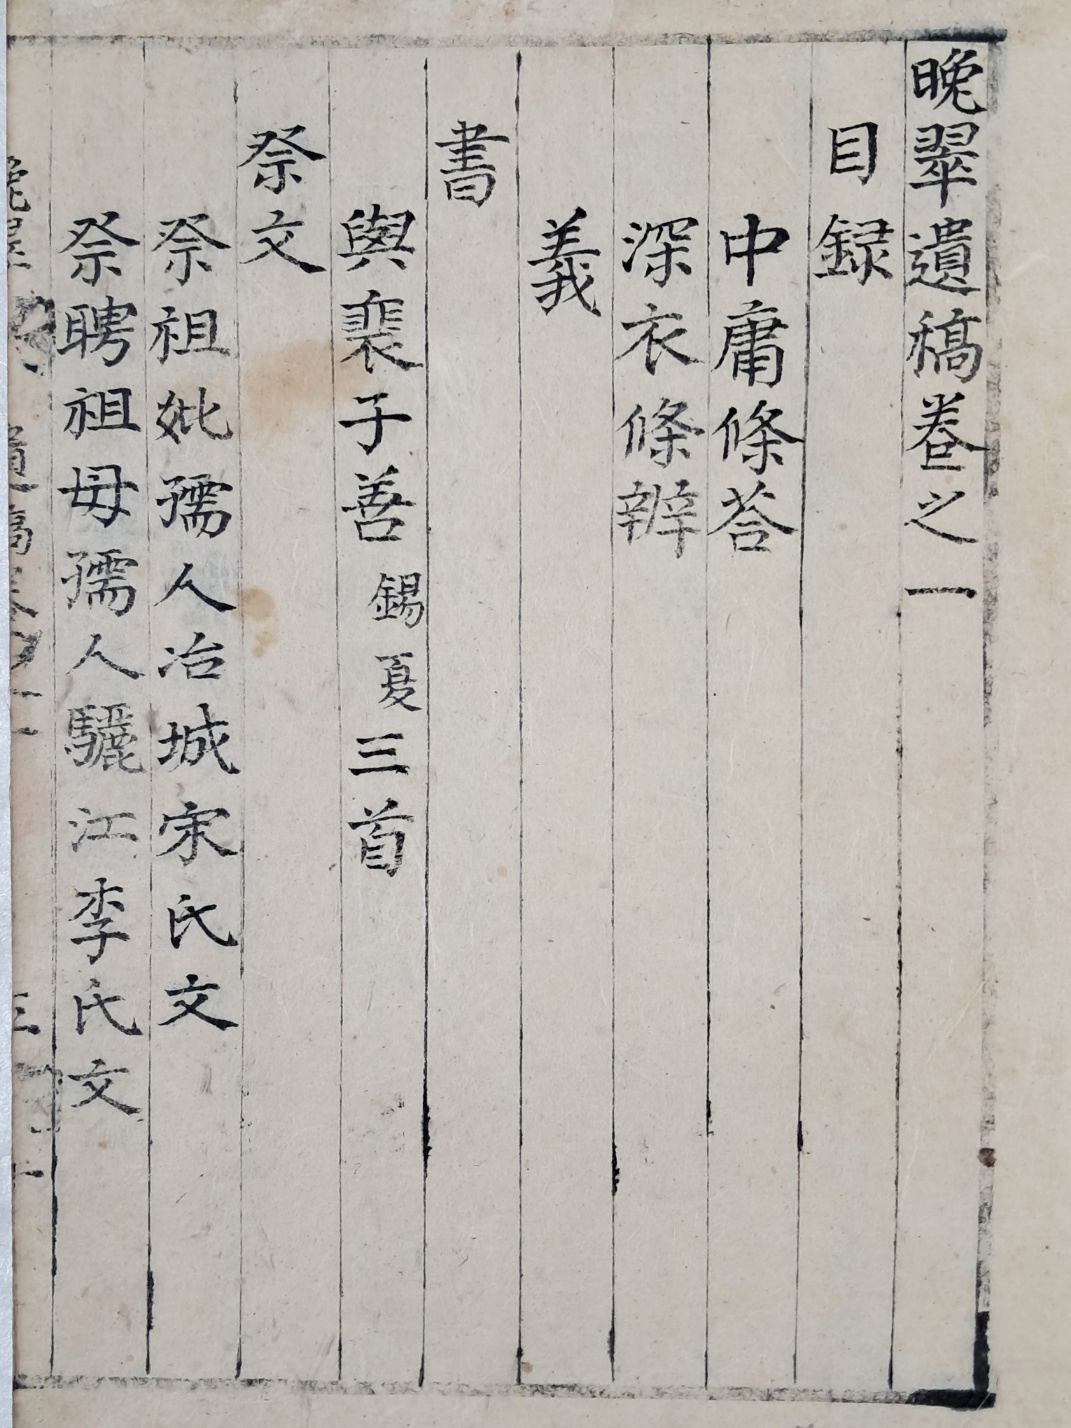 晚翠遺稿卷之一
目録
中庸條荅
深衣條辨
義
書
與裴子善錫夏三首
祭文
祭祖妣孺人冶城宋氏文
祭聘祖母孺人驪江李氏文